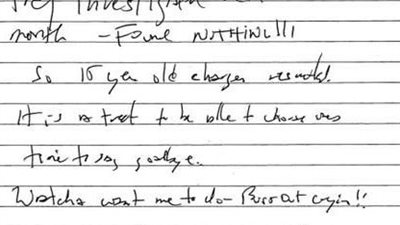 investigated
month - Found NOTHING!!!
So 15 year old charges resulted.
It is a treat to be able to choose ones
time to say goodbye.
Watcha want me to do - Burst out cryin!!